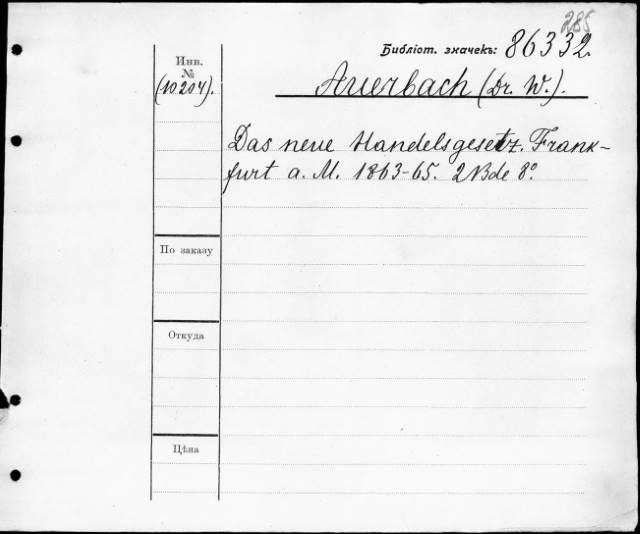 285
Библіот. значекъ: 86332
Инв.
№
(10204).
Auerbach (Dr. W.).
Das neue Handelsgesetz. Frank-
furt a. M. 1863-65. 2 Bde 8º.
По заказу
Откуда
Цѣна